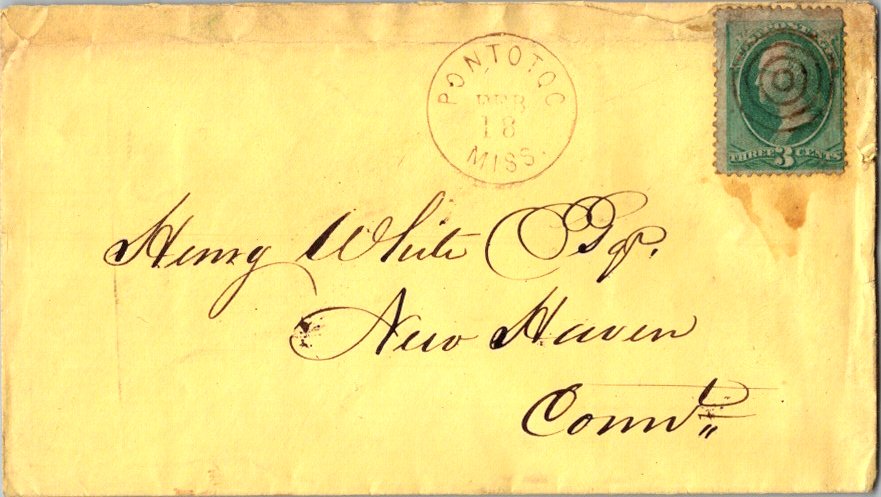 PONTOTOC
FEB
18
MISS.
THREE 3 CENTS
Henry White Esqr.
New Haven
Connt.